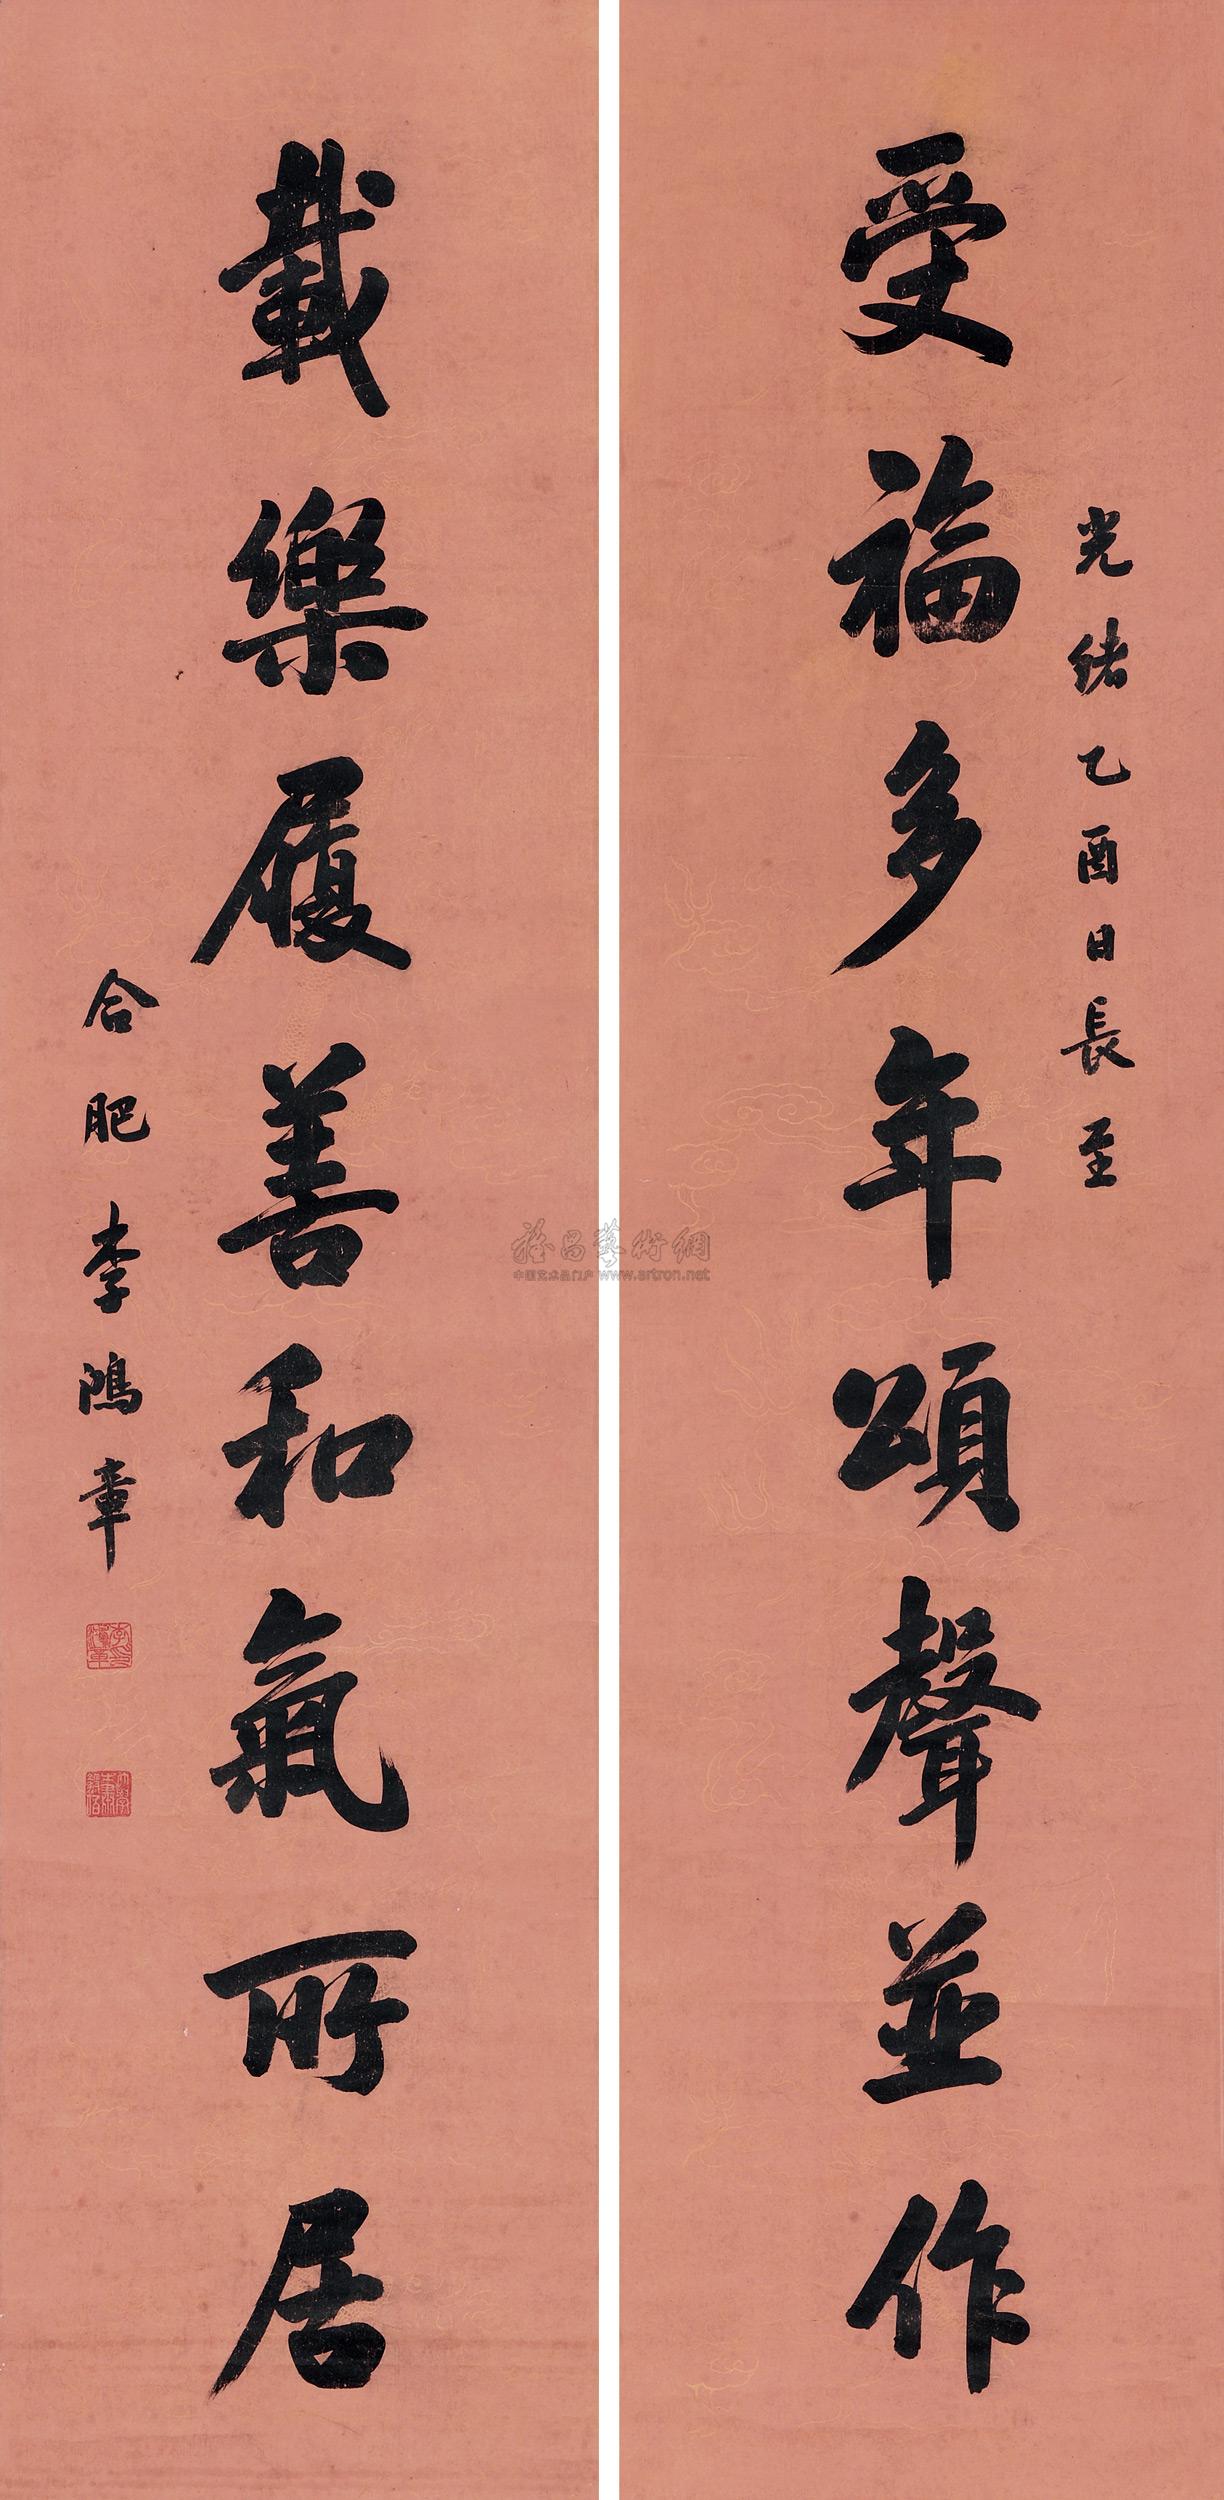 光緒乙酉日長至
受福多年頌聲並作
載樂履善和氣所居
合肥李鴻章
雅昌藝術網
中国艺术品门户 www.artron.net